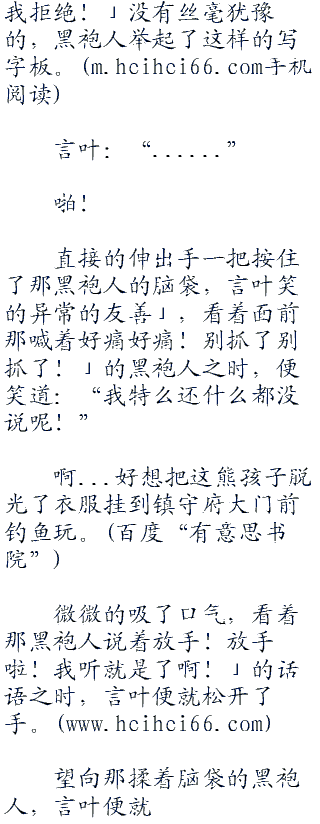 我拒绝！」没有丝毫犹豫
的，黑袍人举起了这样的写
字板。(m.hcihci66.com手机
阅读)
言叶：“......”
啪！
直接的伸出手一把按住
了那黑袍人的脑袋，言叶笑
的异常的友善」，看着面前
那喊着好痛好痛！别抓了别
抓了！」的黑袍人之时，便
笑道：“我特么还什么都没
说呢！”
啊...好想把这熊孩子脱
光了衣服挂到镇守府大门前
钓鱼玩。(百度“有意思书
院”)
微微的吸了口气，看着
那黑袍人说着放手！放手
啦！我听就是了啊！」的话
语之时，言叶便就松开了
手。(www.hcihci66.com)
望向那揉着脑袋的黑袍
人，言叶便就